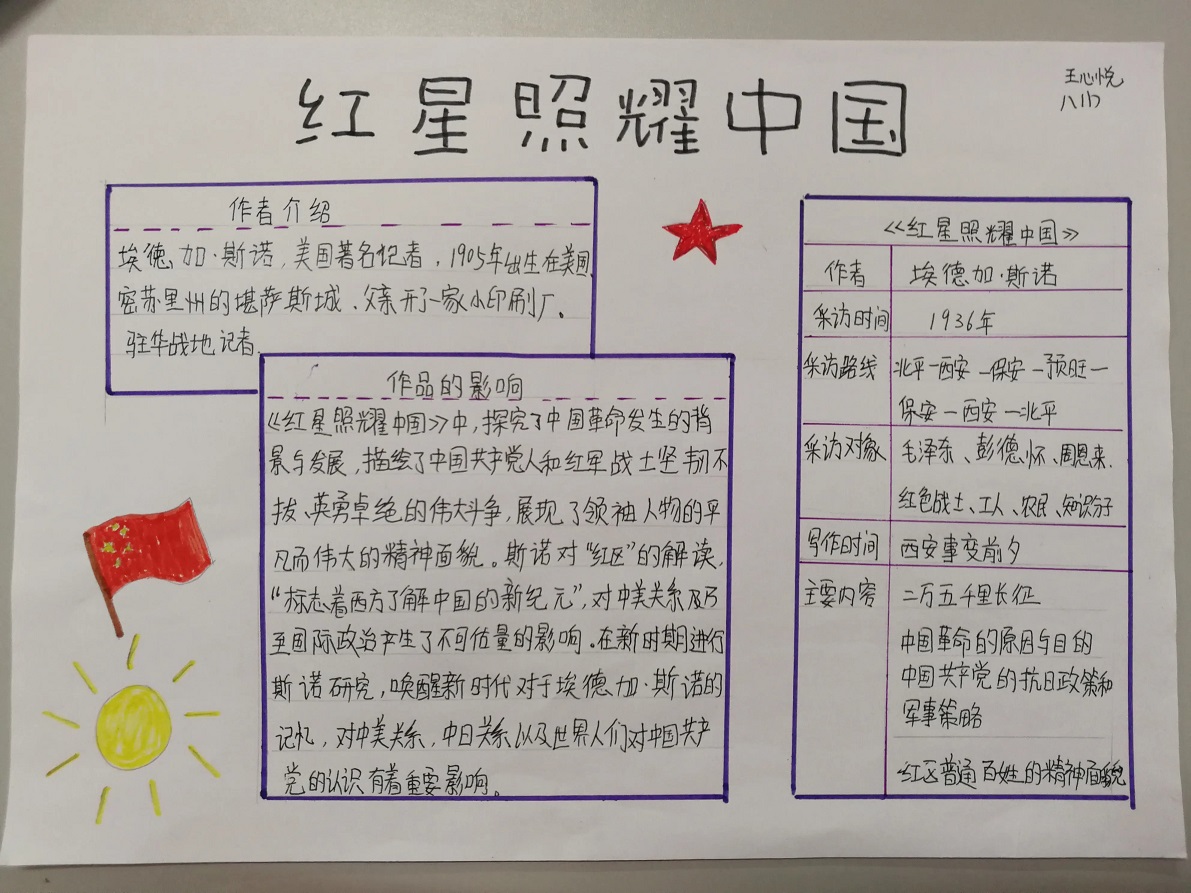 红星照耀中国
王心悦
八(1)
作者介绍
埃德加·斯诺,美国著名记者,1905年出生在美国
密苏里州的堪萨斯城、父亲开了一家小印刷厂。
驻华战地记者.
作品的影响
《红星照耀中国》中,探究了中国革命发生的背
景与发展,描绘了中国共产党人和红军战士坚韧不
拔、英勇卓绝的伟大斗争,展现了领袖人物的平
凡而伟大的精神面貌。斯诺对“红区”的解读,
“标志着西方了解中国的新纪元”,对中美关系及乃
至国际政治产生了不可估量的影响.在新时期进行
斯诺研究,唤醒新时代对于埃德加·斯诺的
记忆,对中美关系,中日关系以及世界人们对中国共产
党的认识有着重要影响。
《红星照耀中国》
作者 埃德加·斯诺
采访时间 1936年
采访路线 北平—西安—保安—预旺—
保安—西安—北平
采访对象 毛泽东、彭德怀、周恩来.
红色战士、工人、农民、知识分子
写作时间 西安事变前夕
主要内容 二万五千里长征
中国革命的原因与目的
中国共产党的抗日政策和
军事策略
红区普通百姓的精神面貌